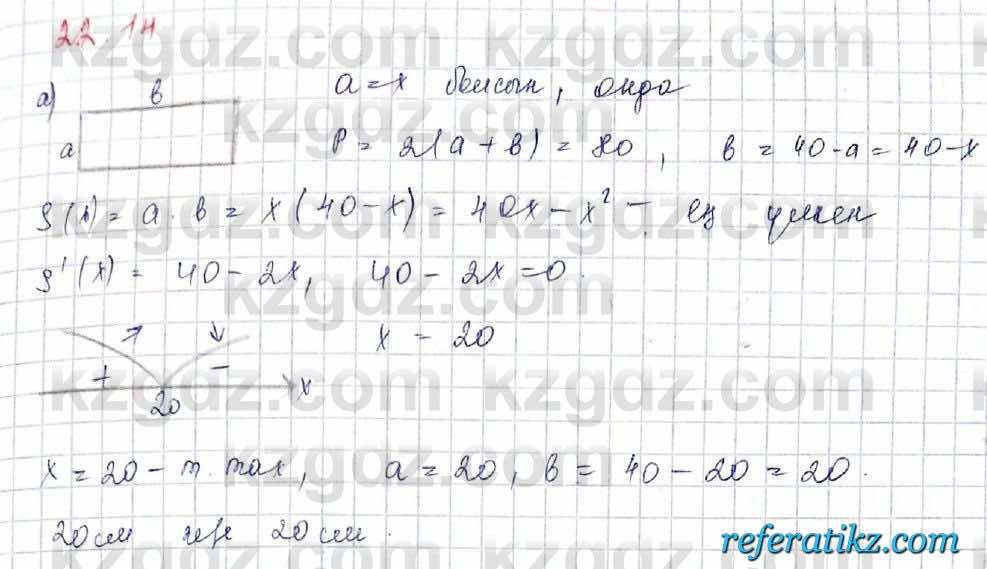 22.14
а) в а
a = x болсын, онда
P = 2(a + в) = 80, в = 40 - a = 40 - x
S(x) = a · в = x(40 - x) = 40x - x² - ең үлкен
S'(x) = 40 - 2x, 40 - 2x = 0.
x = 20
+ - 20 x
x = 20 - т. max, a = 20, в = 40 - 20 = 20.
20 см және 20 см.
kzgdz.com
referatikz.com